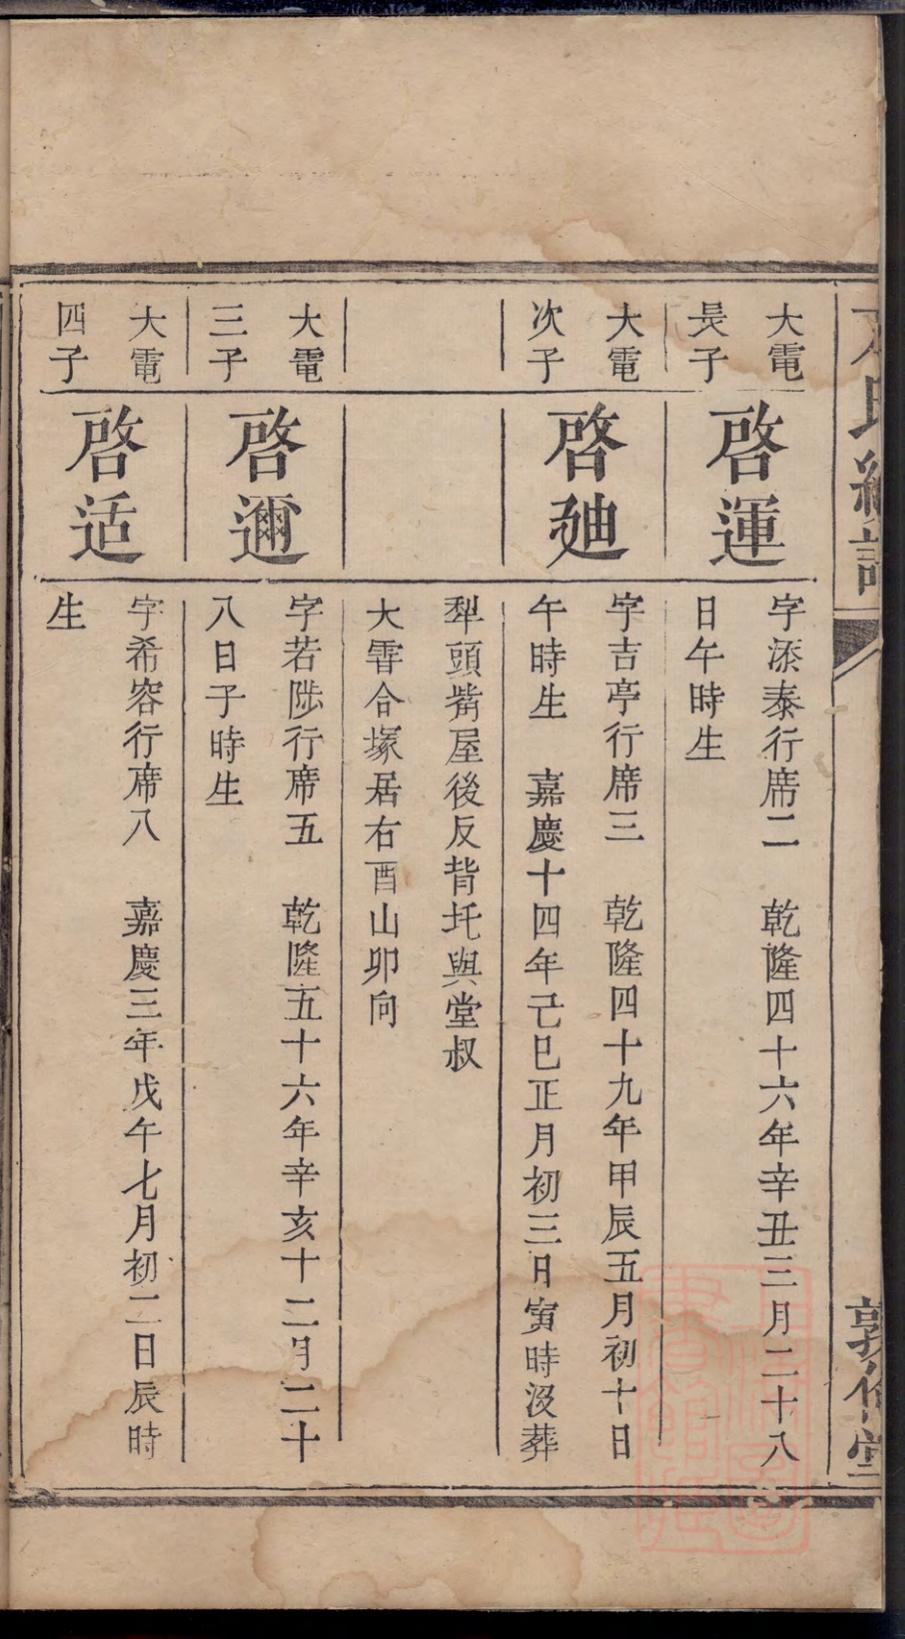 氏
敦倫堂
大電
長子
啓運
字添泰行席二 乾隆四十六年辛丑三月二十八
日午時生
大電
次子
啓廸
字吉亭行席三 乾隆四十九年甲辰五月初十日
午時生 嘉慶十四年己巳正月初三日寅時没葬
犁頭觜屋後反背圫與堂叔
大霅合塚居右酉山卯向
大電
三子
啓邇
字若陟行席五 乾隆五十六年辛亥十二月二十
八日子時生
大電
四子
啓适
字希容行席八 嘉慶三年戊午七月初二日辰時
生